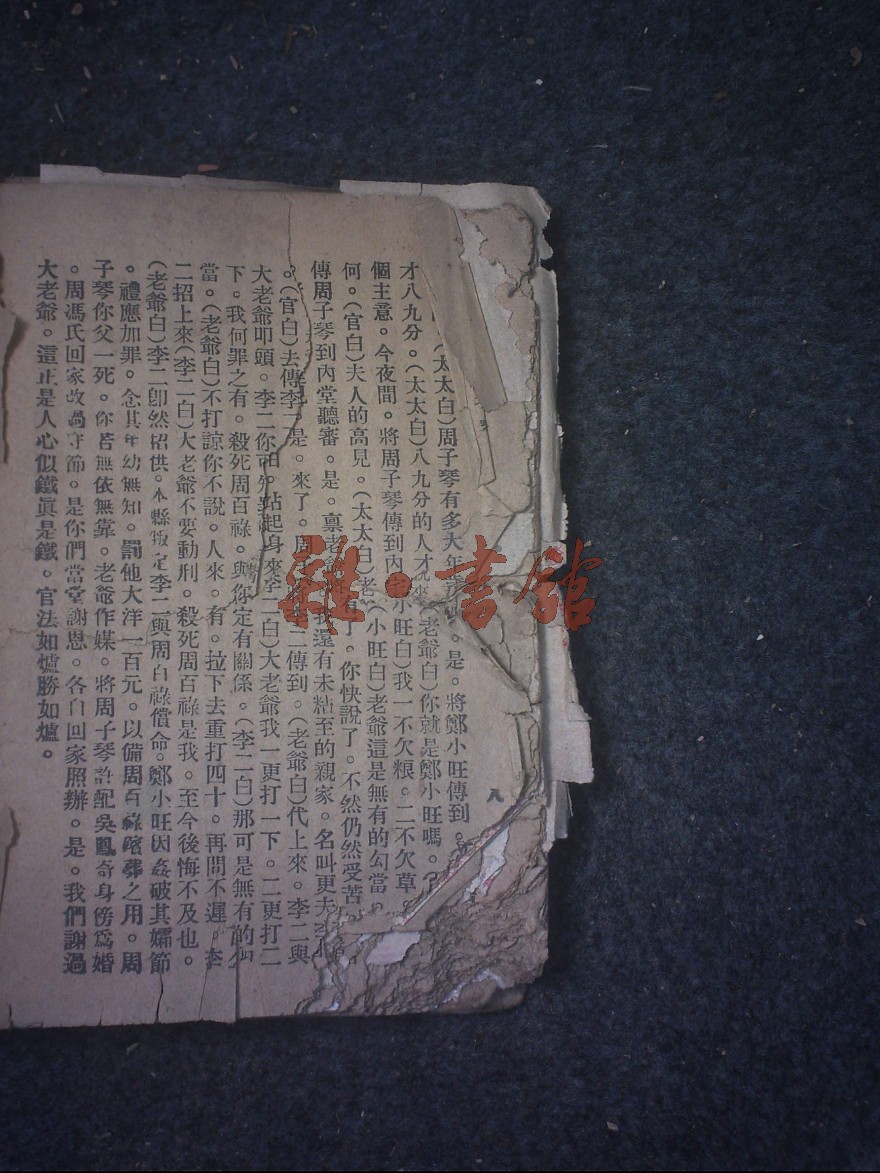 (太太白)周子琴有多大年 是。將鄭小旺傳到。
才八九分。(太太白)八九分的人才 老爺白)你就是鄭小旺嗎。
個主意。今夜間。將周子琴傳到內 小旺白)我一不欠粮。二不欠草。
何。(官白)夫人的高見。(太太白)老 (小旺白)老爺這是無有的勾當。
傳周子琴到內堂聽審。是。禀老 了。你快說了。不然仍然受苦
。(官白)去傳李 是。來了。周 我還有未粘至的親家。名叫更夫李
大老爺叩頭。李二你 站起身來 李二傳到。(老爺白)代上來。李二與
下。我何罪之有。殺死周百祿。與你定有關係。(李二白)大老爺我一更打一下。二更打二
當。(老爺白)不打諒你不說。人來。有。拉下去重打四十。再問不遲。李
二招上來(李二白)大老爺不要動刑。殺死周百祿是我。至今後悔不及也。
(老爺白)李二卽然招供。本縣叛定李二與周百祿償命。鄭小旺因姦破其孀節
。禮應加罪。念其年幼無知。罰他大洋一百元。以備周百祿殯葬之用。周
子琴你父一死。你若無依無靠。老爺作媒。將周子琴許配吳鳳奇身傍爲婚
。周馮氏回家改過守節。是你們當堂謝恩。各自回家照辦。是。我們謝過
大老爺。這正是人心似鐵眞是鐵。官法如爐勝如爐。
八
雜·書舘